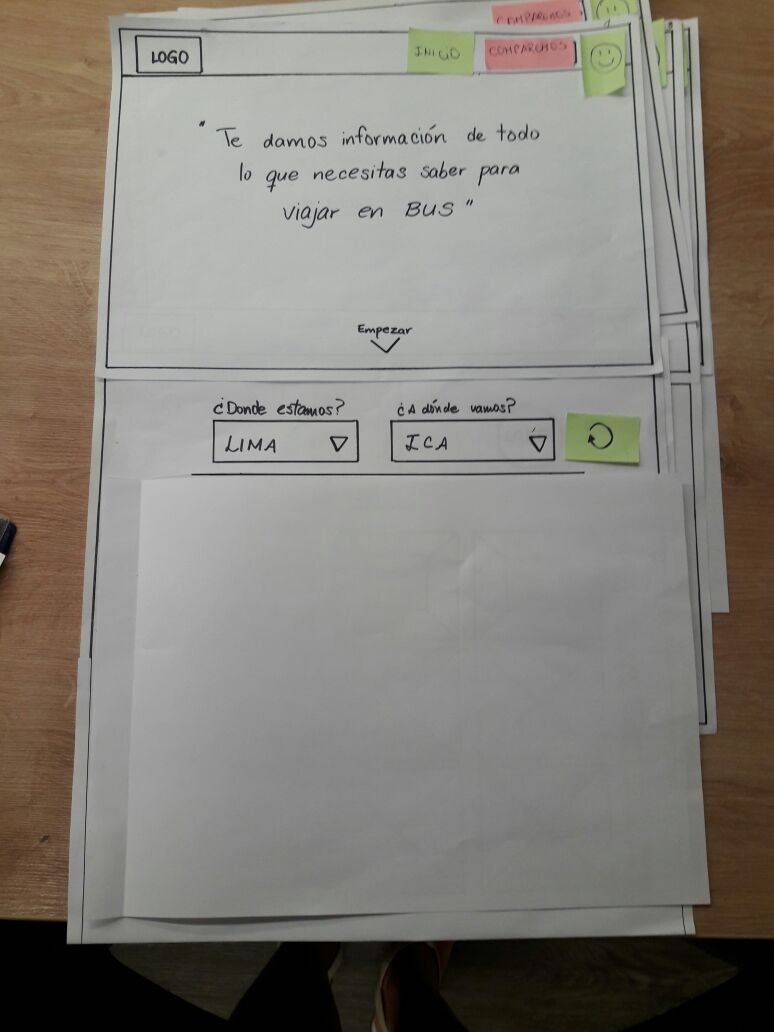 COMPAREMOS
LOGO
INICIO
COMPAREMOS
"Te damos información de todo
lo que necesitas saber para
viajar en BUS"
Empezar
¿Donde estamos?
¿A dónde vamos?
LIMA
ICA